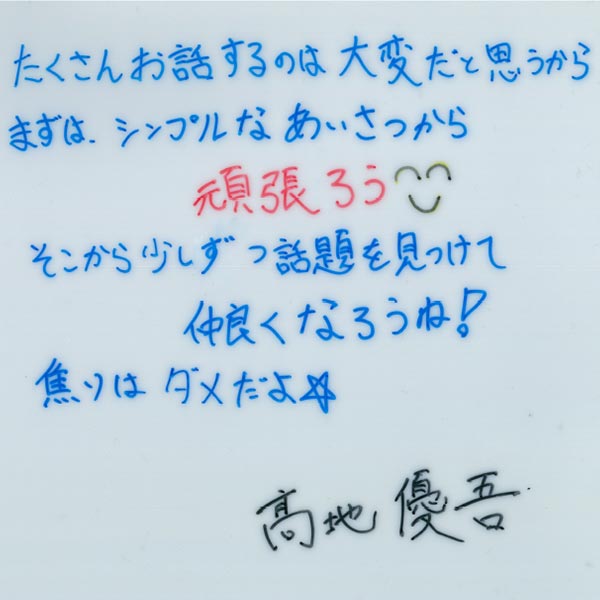 たくさんお話するのは大変だと思うから
まずは、シンプルなあいさつから
頑張ろう
そこから少しずつ話題を見つけて
仲良くなろうね!
焦りはダメだよ☆
髙地優吾